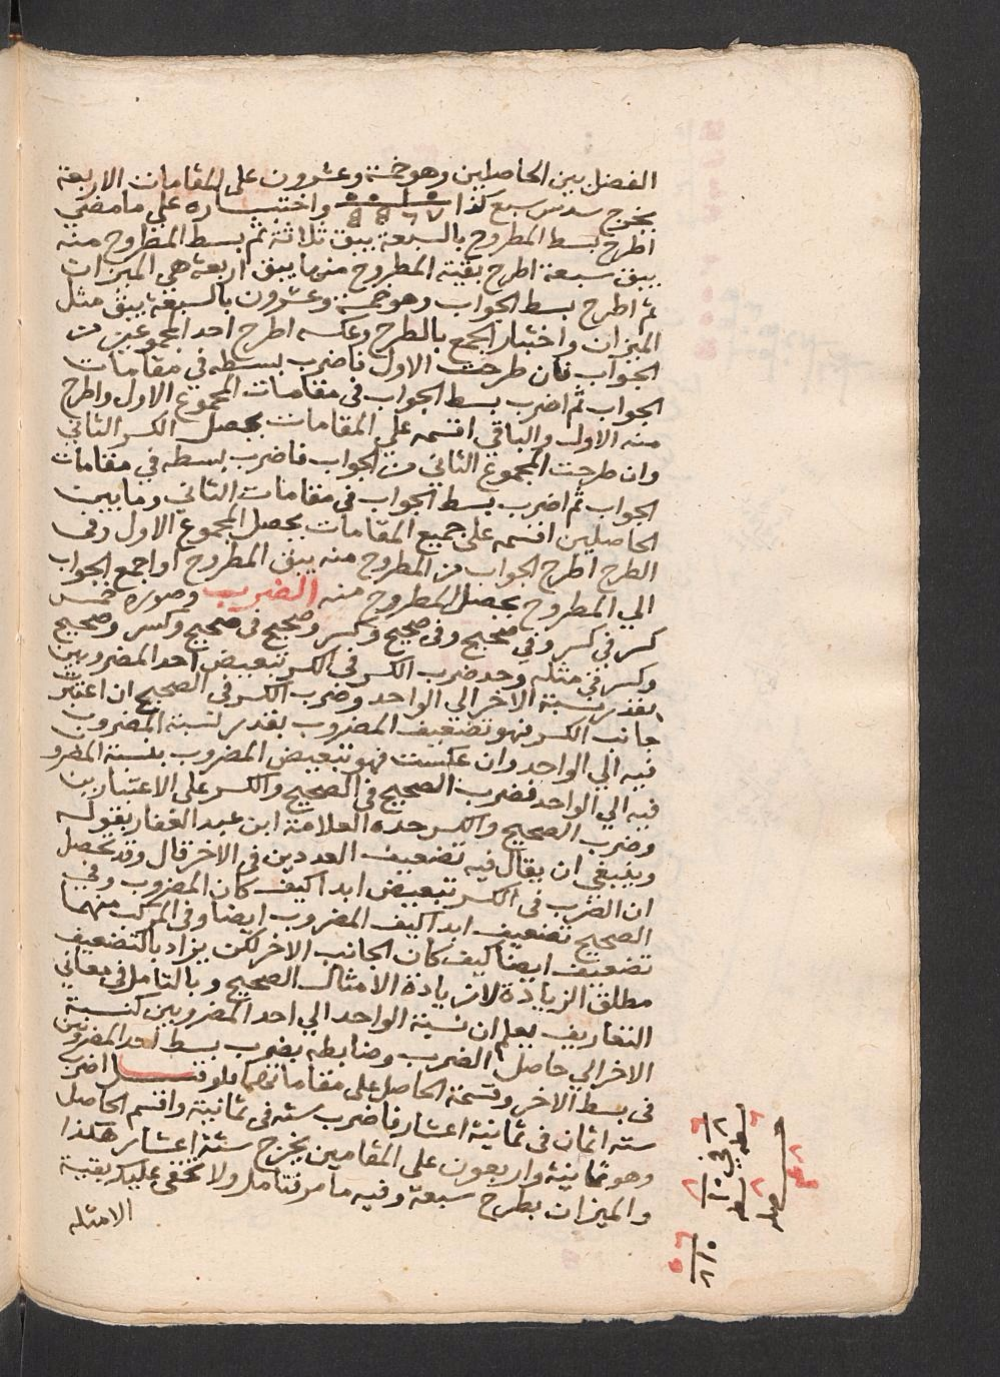 الفضل بين الحاصلين وهو خمسة وعشرون على المقامات الاربعة
يخرج سدس سبع كذا واختباره على ما مضى
اطرح بسط المطروح بالسبعة يبق ثلاثة ثم بسط المطروح منه
يبق سبعة اطرح بقية المطروح منها يبق اربعة هي الميزان
ثم اطرح بسط الجواب وهو خمسة وعشرون بالسبعة يبق مثل
الميزان واختبار الجمع بالطرح وعكسه اطرح احد المجموعين من
الجواب فان طرحت الاول فاضرب بسطه في مقامات
الجواب ثم اضرب بسط الجواب في مقامات المجموع الاول واطرح
منه الاول والباقي اقسمه على المقامات يحصل الكسر الثاني
وان طرحت المجموع الثاني من الجواب فاضرب بسطه في مقامات
الجواب ثم اضرب بسط الجواب في مقامات الثاني وما بين
الحاصلين اقسمه على جميع المقامات يحصل المجموع الاول وفي
الطرح اطرح الجواب من المطروح منه يبق المطروح او اجمع الجواب
الي المطروح يحصل المطروح منه الضرب وصوره خمس
كسر في كسر وفي صحيح وفي صحيح وكسر وصحيح في صحيح وكسر وصحيح
وكسر في مثله وحد ضرب الكسر في الكسر تبعيض احد المضروبين
بقدر نسبة الاخر الى الواحد وضرب الكسر في الصحيح ان اعتبر
جانب الكسر فهو تضعيف المضروب بقدر نسبة المضروب
فيه الي الواحد وان عكست فهو تبعيض المضروب بنسبة المضرو
فيه الي الواحد فضرب الصحيح في الصحيح والكسر على الاعتبارين
وضرب الصحيح والكسر حده العلامة ابن عبد الغفار بقوله
وينبغي ان يقال فيه تضعيف العددين في الاخر قال وقد تحصل
ان الضرب في الكسر تبعيض ابدا كيف كان المضروب وفي
الصحيح تضعيف ابدا كيف المضروب ايضا وفي المركب منهما
تضعيف ايضا كيف كان الجانب الاخر لكن يراد بالتضعيف
مطلق الزيادة لا زيادة الامثال الصحيح وبالتامل في معاني
التعاريف يعلم ان نسبة الواحد الي احد المضروبين كنسبة
الاخر الي حاصل الضرب وضابطه بضرب بسط احد المضروبين
في بسط الاخر وقسمة الحاصل على مقاماتهما فلو قيل اضرب
ستة اثمان في ثمانية اعشار فاضرب ستة في ثمانية واقسم الحاصل
وهو ثمانية واربعون على المقامين يخرج ستة اعشار هكذا
والميزان بطرح سبعة وفيه ما مر فتامل ولا يخفى عليك بقية
الامثلة